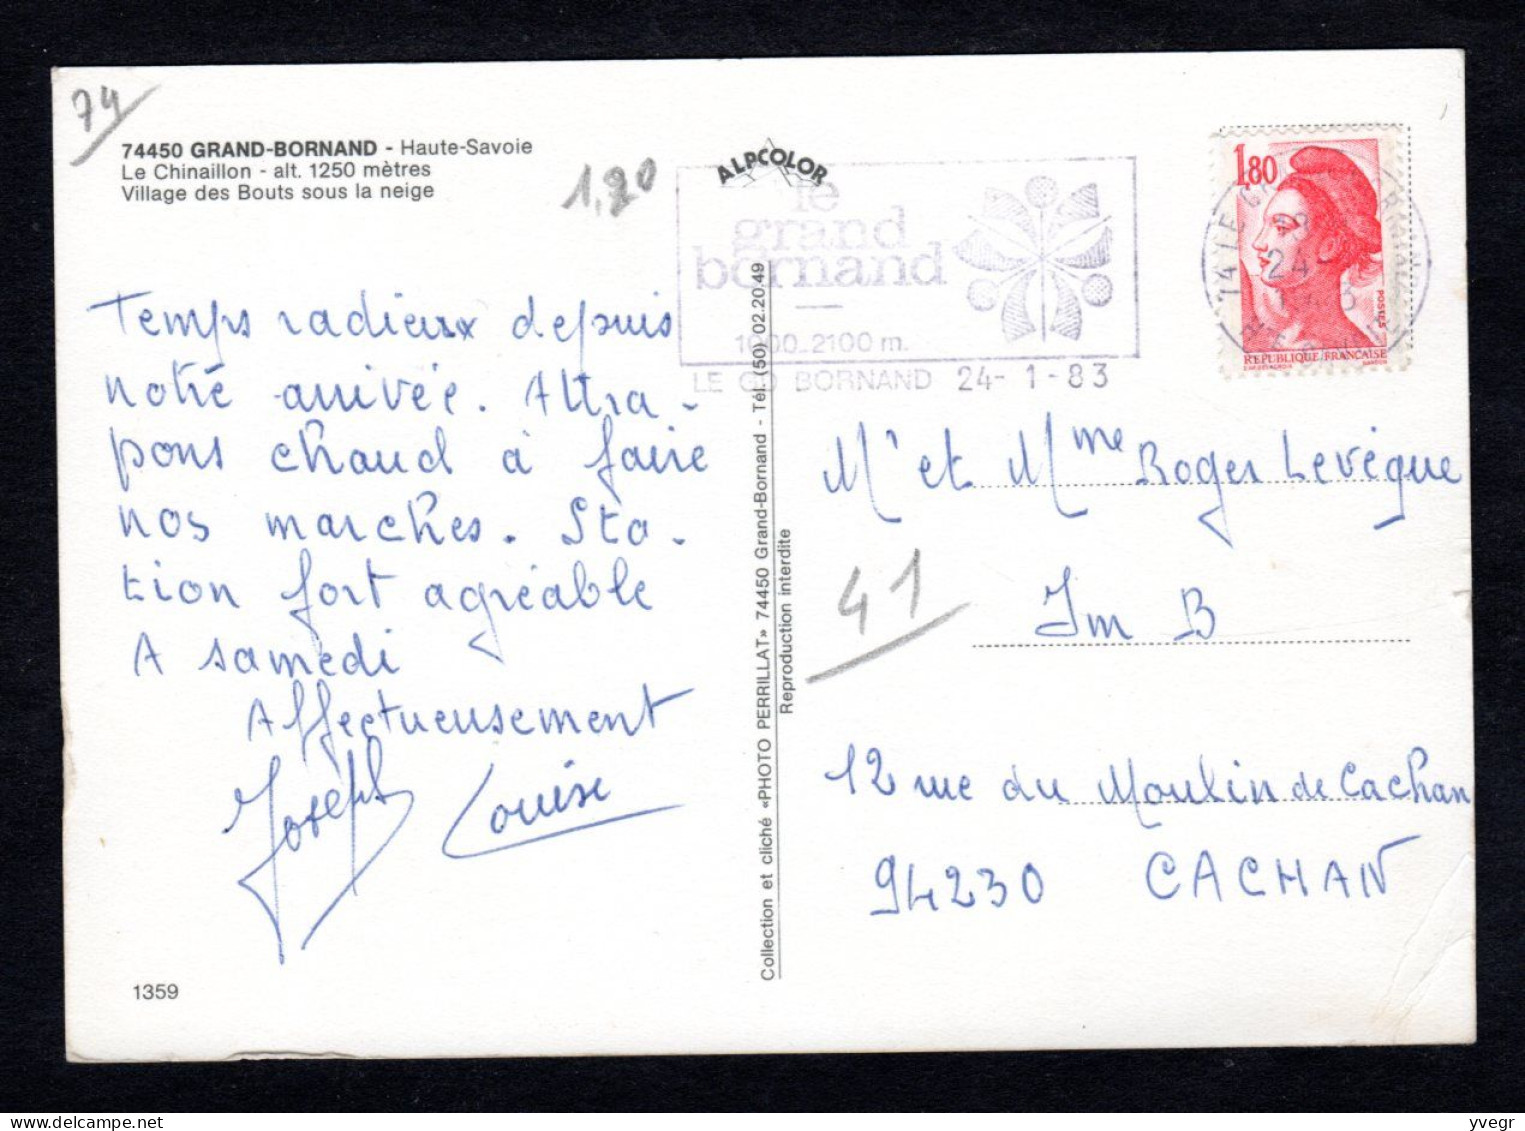 74
74450 GRAND-BORNAND - Haute-Savoie
Le Chinaillon - alt. 1250 mètres
Village des Bouts sous la neige
1,20
ALPCOLOR
le
grand
bornand
1000-2100 m.
LE GD BORNAND 24-1-83
1,80
POSTES
REPUBLIQUE FRANÇAISE
Temps radieux depuis
notre arrivée. Attra-
pons chaud à faire
nos marches. Sta-
tion fort agréable
A samedi
Affectueusement
Joseph Louise
1359
Collection et cliché «PHOTO PERRILLAT» 74450 Grand-Bornand - Tél. (50) 02.20.49
Reproduction interdite
Mr et Mme Roger Levêque
41
Im B
12 rue du Moulin de Cachan
94230 CACHAN
yvegr